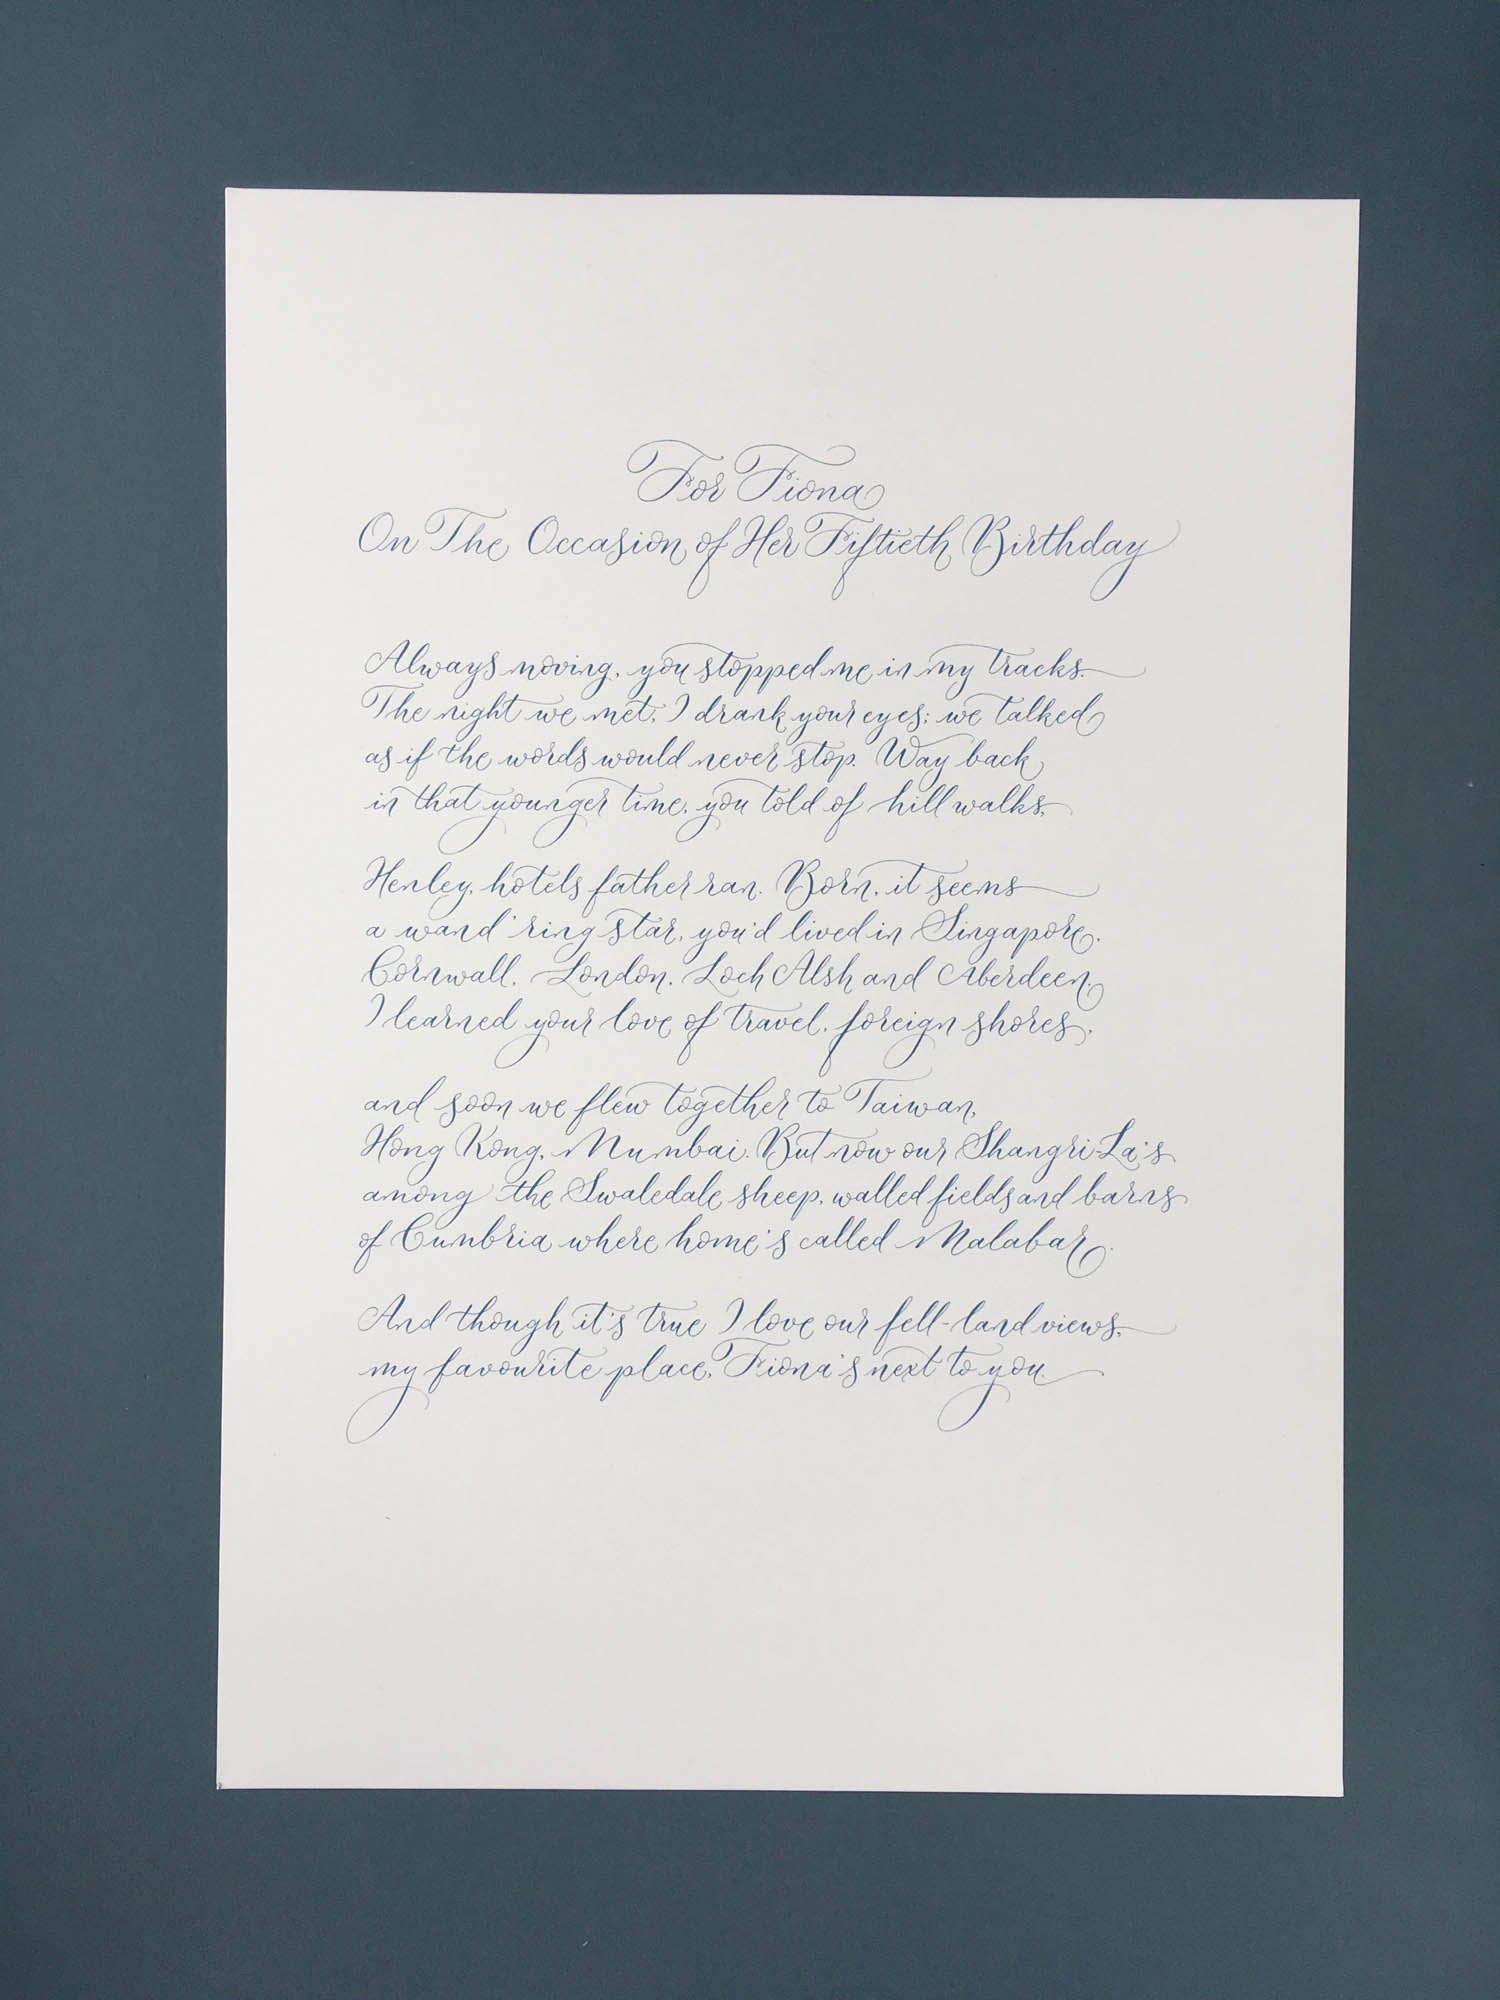 For Fiona
On The Occasion of Her Fiftieth Birthday
Always moving, you stopped me in my tracks.
The night we met, I drank your eyes; we talked
as if the words would never stop. Way back
in that younger time, you told of hill walks,
Henley, hotels father ran. Born, it seems
a wand'ring star, you'd lived in Singapore,
Cornwall, London, Loch Alsh and Aberdeen,
I learned your love of travel, foreign shores,
and soon we flew together to Taiwan,
Hong Kong, Mumbai. But now our Shangri-La's
among the Swaledale sheep, walled fields and barns
of Cumbria where home's called Malabar.
And though it's true I love our fell-land views,
my favourite place, Fiona's next to you.